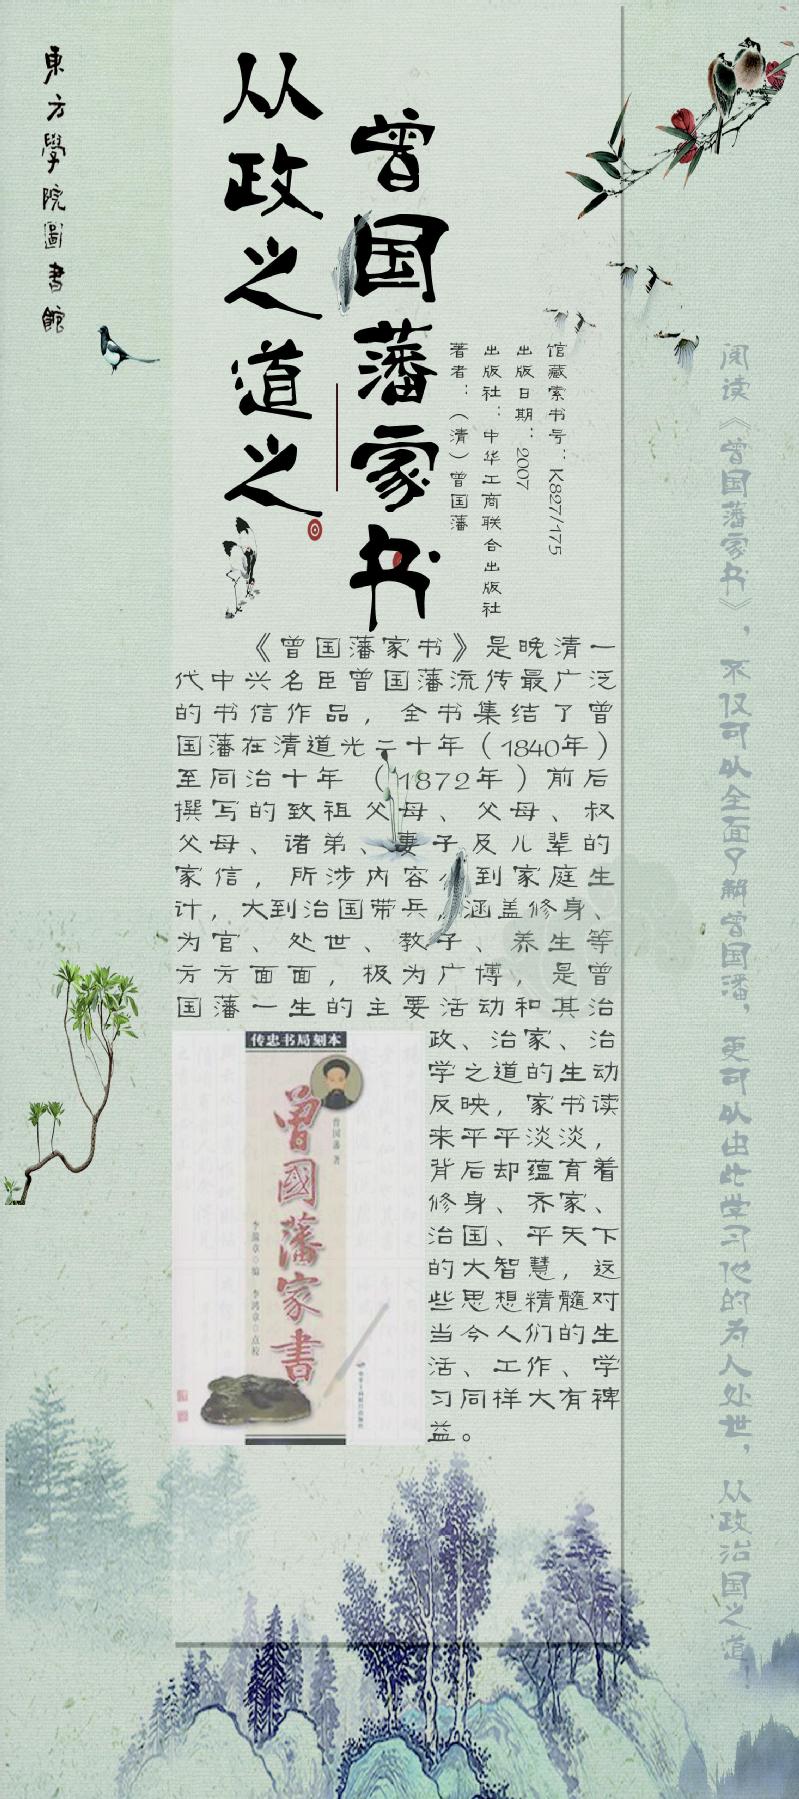 東方學院圖書館
从政之道之
曾国藩家书
著者：（清）曾国藩
出版社：中华工商联合出版社
出版日期：2007
馆藏索书号：K827/175
《曾国藩家书》是晚清一
代中兴名臣曾国藩流传最广泛
的书信作品，全书集结了曾
国藩在清道光二十年（1840年）
至同治十年（1872年）前后
撰写的致祖父母、父母、叔
父母、诸弟、妻子及儿辈的
家信，所涉内容小到家庭生
计，大到治国带兵，涵盖修身、
为官、处世、教子、养生等
方方面面，极为广博，是曾
国藩一生的主要活动和其治
政、治家、治
学之道的生动
反映，家书读
来平平淡淡，
背后却蕴育着
修身、齐家、
治国、平天下
的大智慧，这
些思想精髓对
当今人们的生
活、工作、学
习同样大有裨
益。
传忠书局刻本
曾國藩家書
曾国藩 著
李瀚章 编 李鸿章 点校
阅读《曾国藩家书》，不仅可以全面了解曾国潘，更可以由此学习他的为人处世，从政治国之道！